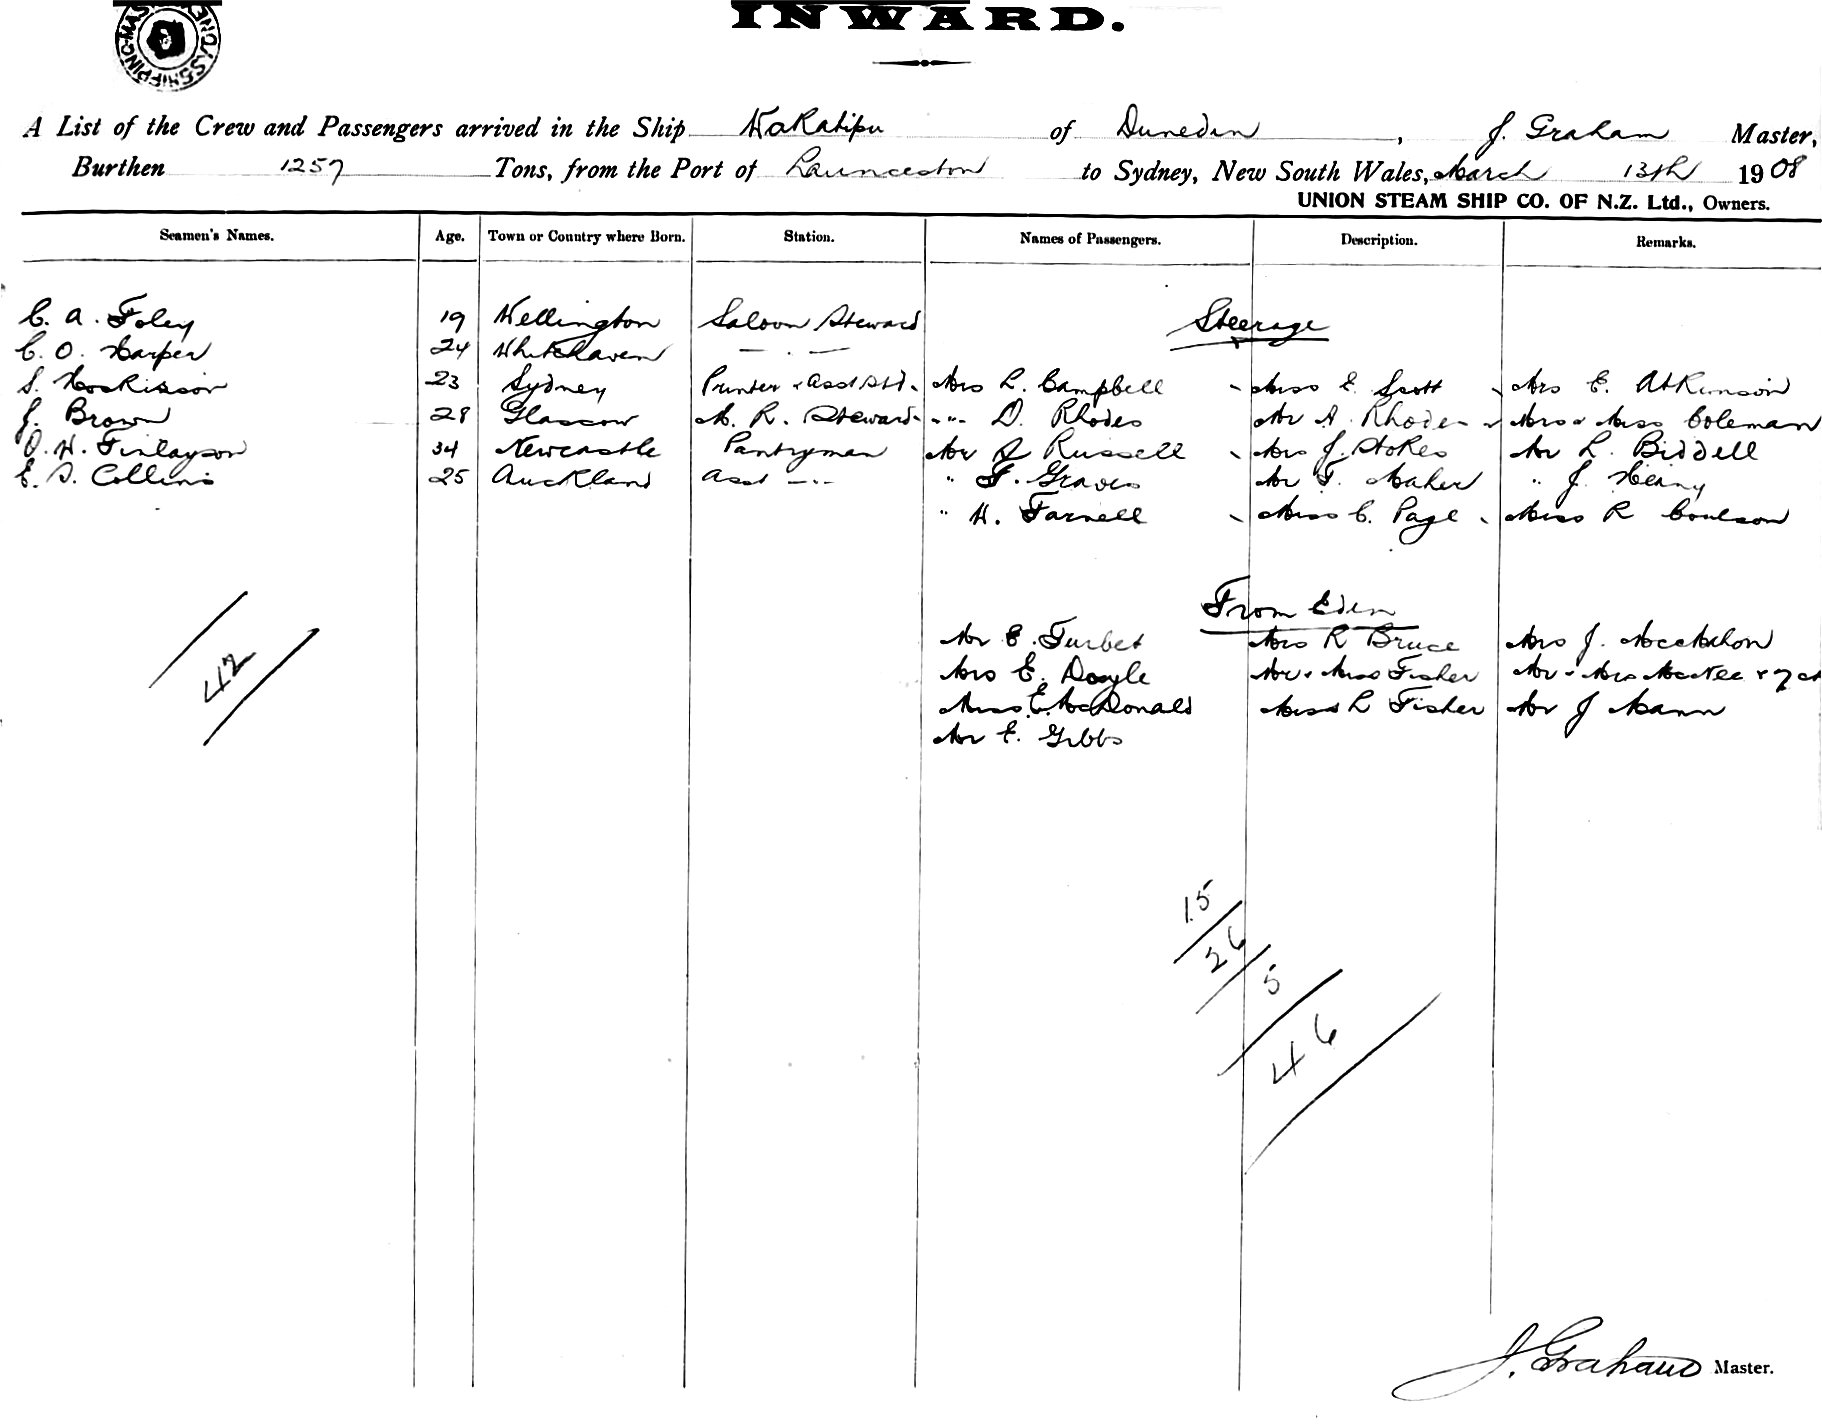 INWARD.
A List of the Crew and Passengers arrived in the Ship Wakatipu of Dunedin, J. Graham Master,
Burthen 1257 Tons, from the Port of Launceston to Sydney, New South Wales, March 13th 1908
UNION STEAM SHIP CO. OF N.Z. Ltd., Owners.
Seamen's Names. Age. Town or Country where Born. Station. Names of Passengers. Description. Remarks.
C. A. Foley 19 Wellington Saloon Steward Steerage
C. O. Harper 24 Whitehaven — . —
S. Hoskisson 23 Sydney Printer & Asst Std. Mrs L. Campbell Miss E. Scott Mrs E. Atkinson
J. Brown 28 Glascow M. R. Steward " D. Rhodes Mr A. Rhodes Mrs & Miss Coleman
O. H. Finlayson 34 Newcastle Pantryman Mr Russell Mrs J. Stokes Mr L. Biddell
E. S. Collins 25 Auckland Asst — .. " F. Graves Mr T. Maher " J. Heany
" H. Farnell Miss C. Page Miss R Coulson
From Eden
Mr E. Turbet Mrs R Bruce Mrs J. McMahon
Mrs E. Doyle Mr & Miss Fisher Mr & Mrs McNee & 7 ch
Miss E. McDonald Miss L Fisher Mr J Mann
Mr E. Gibbs
42
15
26
5
46
J. Graham Master.